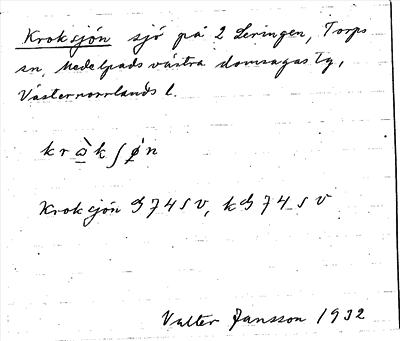 Kroksjön sjö på 2 Leringen, Torps
sn, Medelpads västra domsagas tg,
Västernorrlands l.
kròkʃǿn
Kroksjön G 74 S V, kG 74 S V
Valter Jansson 1932